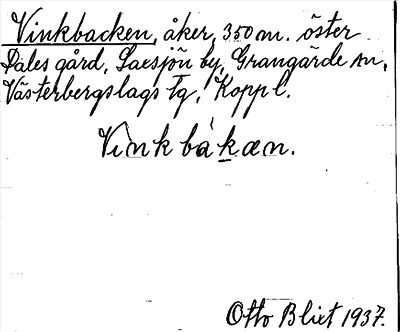 Vinkbacken, åker, 350 m. öster
Dales gård, Laesjön by, Grangärde sn,
Västerbergslags tg, Koppl.
Vinkbàkæn.
Otto Blixt 1937.